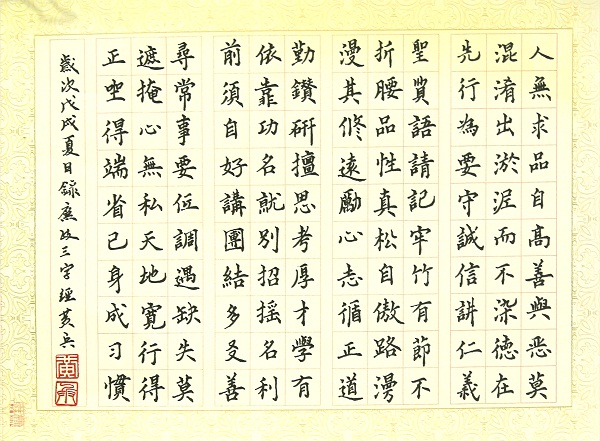 人無求品自高善與惡莫
混淆出淤泥而不染德在
先行為要守誠信講仁義
聖賢語請記牢竹有節不
折腰品性真松自傲路漫
漫其修遠勵心志循正道
勤鑽研擅思考厚才學有
依靠功名就別招搖名利
前須自好講團結多友善
尋常事要低調遇缺失莫
遮掩心無私天地寬行得
正坐得端省己身成习慣
歲次戊戌夏日錄廉政三字經黃兵